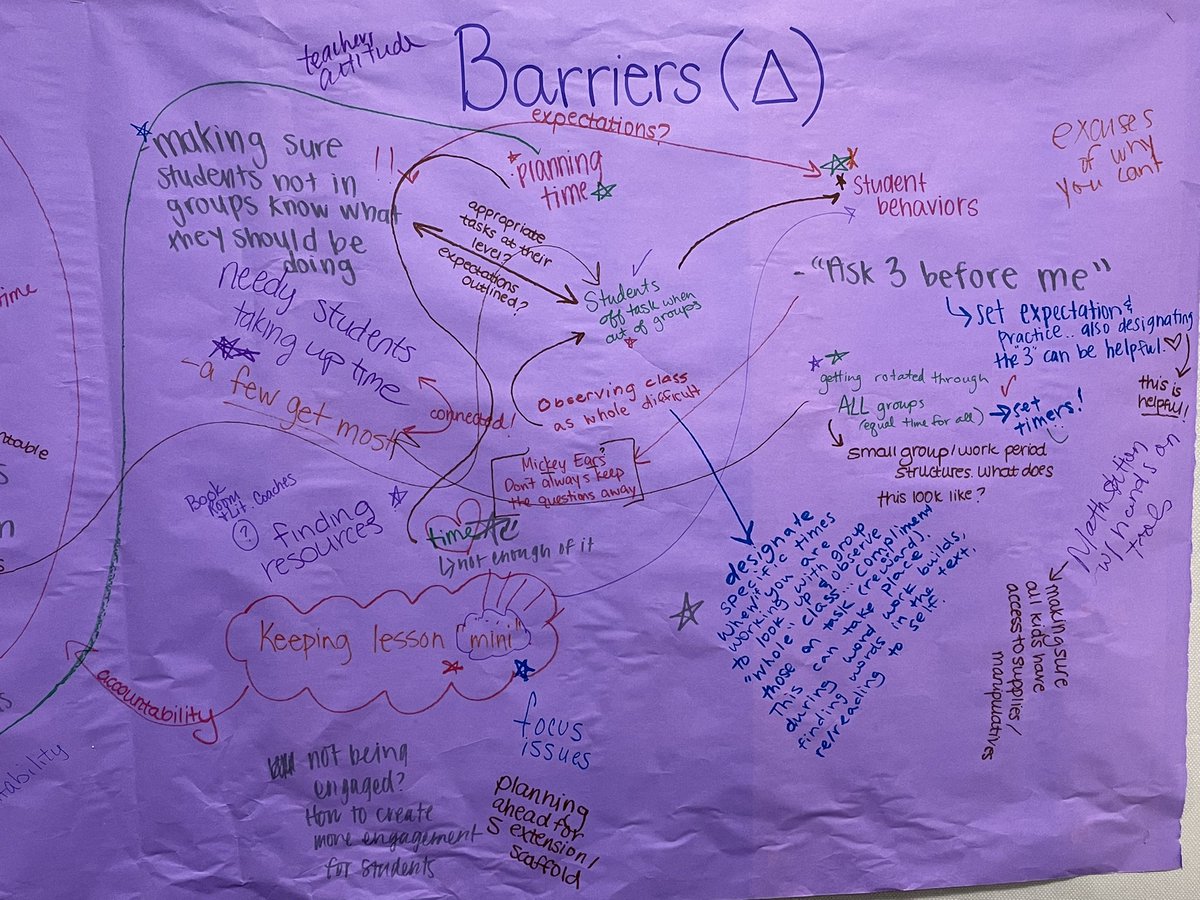 teachers
attitude
Barriers (Δ)
expectations?
making sure
students not in
groups know what
they should be
doing
!!
planning
time
student
behaviors
excuses
of why
you cant
appropriate
tasks at their
level?
expectations
outlined?
Students
off task when
out of groups
-"Ask 3 before me"
set expectation &
practice.. also designating
the "3" can be helpful.
this is
helpful!
needy students
taking up time
-a few get most
connected!
Observing class
as whole difficult
getting rotated through
ALL groups
(equal time for all)
set
timers!
small group/work period
structures. What does
this look like?
Mickey Ears?
Don't always keep
the questions away
Book
Room
+ Lit. Coaches
?
finding
resources
time
not enough of it
Math station
w/ hands on
tools
making sure
all kids have
access to supplies/
manipulatives
designate
specific times
when if you are
working with group
to look up & observe
"whole" class... compliment
those on task (reward).
This can take place
during word work builds,
finding words in the text,
re/reading to self.
Keeping lesson "mini"
accountability
focus
issues
not being
engaged?
How to create
more engagement
for students
planning
ahead for
S extension/
scaffold